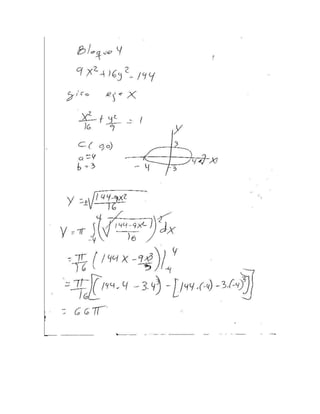 Bloque 4
9x²+16y²-144
giro eje X
x²/16 + y²/9 = 1
C( 0,0)
a=4
b=3
y
3
-4
4
x
-3
y = ±√(144-9x²/16)
V = π ∫₋₄⁴ (√(144-9x²/16))² dx
= π/16 (144x - 9x³/3) |₋₄⁴
= π/16 [(144.4 - 3.4³) - [144.(-4) - 3.(-4)³]]
= 66π